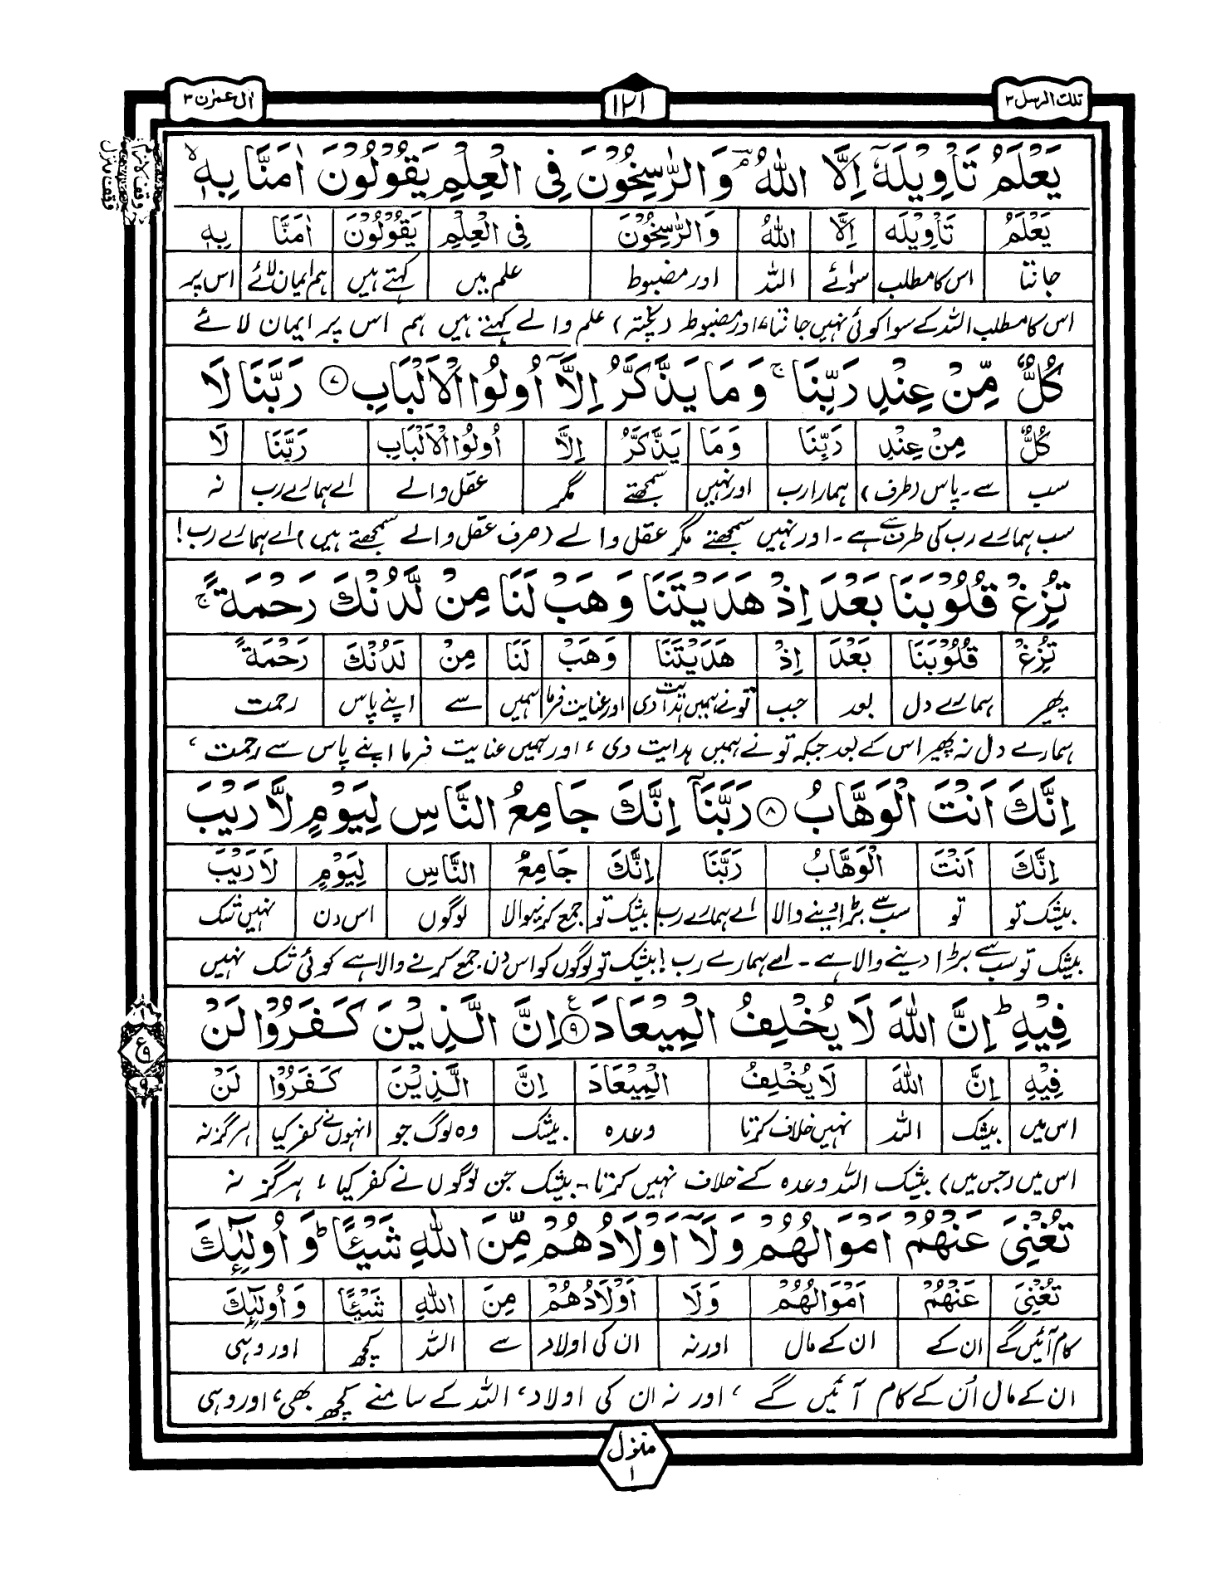 تلك الرسل ۳
۱۲۱
اٰل عمرٰن ۳
وقف لازم
وقف منزل
يَعْلَمُ تَاْوِيْلَهٗۤ اِلَّا اللّٰهُ ۘ وَالرّٰسِخُوْنَ فِي الْعِلْمِ يَقُوْلُوْنَ اٰمَنَّا بِهٖ ۙ
يَعْلَمُ تَاْوِيْلَهٗ اِلَّا اللّٰهُ وَالرّٰسِخُوْنَ فِي الْعِلْمِ يَقُوْلُوْنَ اٰمَنَّا بِهٖ
جانتا اس کا مطلب سوائے اللہ اور مضبوط علم میں کہتے ہیں ہم ایمان لائے اس پر
اس کا مطلب اللہ کے سوا کوئی نہیں جانتا، اور مضبوط (پختہ) علم والے کہتے ہیں ہم اس پر ایمان لائے
كُلٌّ مِّنْ عِنْدِ رَبِّنَا ۚ وَمَا يَذَّكَّرُ اِلَّاۤ اُولُوا الْاَلْبَابِ ۷ رَبَّنَا لَا
كُلٌّ مِنْ عِنْدِ رَبِّنَا وَمَا يَذَّكَّرُ اِلَّا اُولُوا الْاَلْبَابِ رَبَّنَا لَا
سب سے۔پاس (طرف) ہمارا رب اور نہیں سمجھتے مگر عقل والے اے ہمارے رب نہ
سب ہمارے رب کی طرف سے ہے۔ اور نہیں سمجھتے مگر عقل والے (صرف عقل والے سمجھتے ہیں) اے ہمارے رب!
تُزِغْ قُلُوْبَنَا بَعْدَ اِذْ هَدَيْتَنَا وَهَبْ لَنَا مِنْ لَّدُنْكَ رَحْمَةً ۚ
تُزِغْ قُلُوْبَنَا بَعْدَ اِذْ هَدَيْتَنَا وَهَبْ لَنَا مِنْ لَدُنْكَ رَحْمَةً
پھیر ہمارے دل بعد جب تونے ہمیں ہدایت دی اور عنایت فرما ہمیں سے اپنے پاس رحمت
ہمارے دل نہ پھیر اس کے بعد جبکہ تونے ہمیں ہدایت دی، اور ہمیں عنایت فرما اپنے پاس سے رحمت،
اِنَّكَ اَنْتَ الْوَهَّابُ ۸ رَبَّنَاۤ اِنَّكَ جَامِعُ النَّاسِ لِيَوْمٍ لَّا رَيْبَ
اِنَّكَ اَنْتَ الْوَهَّابُ رَبَّنَا اِنَّكَ جَامِعُ النَّاسِ لِيَوْمٍ لَا رَيْبَ
بیشک تو تو سب سے بڑا دینے والا اے ہمارے رب بیشک تو جمع کرنیوالا لوگوں اس دن نہیں شک
بیشک تو سب سے بڑا دینے والا ہے۔ اے ہمارے رب! بیشک تو لوگوں کو اس دن جمع کرنے والا ہے کوئی شک نہیں
فِيْهِ ؕ اِنَّ اللّٰهَ لَا يُخْلِفُ الْمِيْعَادَ ۹ ع اِنَّ الَّذِيْنَ كَفَرُوْا لَنْ
۱
ع ۹
۹
فِيْهِ اِنَّ اللّٰهَ لَا يُخْلِفُ الْمِيْعَادَ اِنَّ الَّذِيْنَ كَفَرُوْا لَنْ
اس میں بیشک اللہ نہیں خلاف کرتا وعدہ بیشک وہ لوگ جو انہوں نے کفر کیا ہرگز نہ
اس میں (جس میں) بیشک اللہ وعدہ کے خلاف نہیں کرتا۔ بیشک جن لوگوں نے کفر کیا، ہرگز نہ
تُغْنِيَ عَنْهُمْ اَمْوَالُهُمْ وَلَاۤ اَوْلَادُهُمْ مِّنَ اللّٰهِ شَيْئًا ؕ وَاُولٰٓئِكَ
تُغْنِيَ عَنْهُمْ اَمْوَالُهُمْ وَلَا اَوْلَادُهُمْ مِنَ اللّٰهِ شَيْئًا وَاُولٰٓئِكَ
کام آئیں گے ان کے ان کے مال اور نہ ان کی اولاد سے اللہ کچھ اور وہی
ان کے مال اُن کے کام آئیں گے، اور نہ ان کی اولاد، اللہ کے سامنے کچھ بھی، اور وہی
منزل
۱